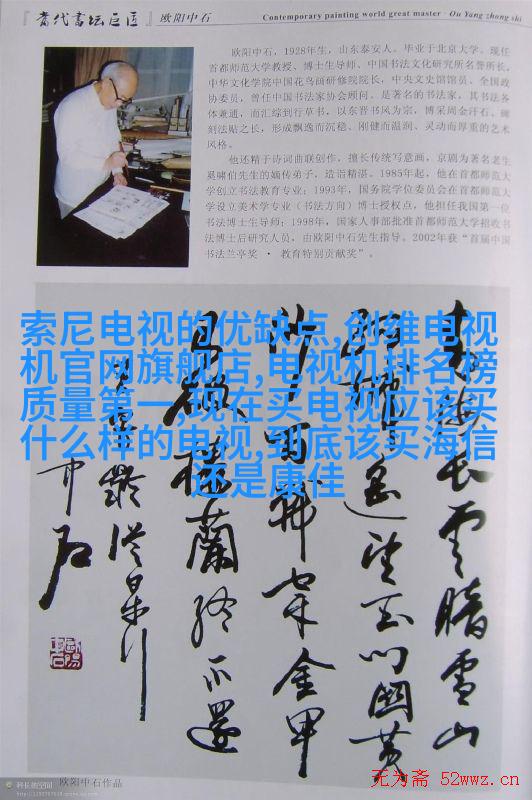 『当代书坛巨匠』欧阳中石
Contemporary painting world great master · Ou Yang zhong shi
欧阳中石，1928年生，山东泰安人。毕业于北京大学。现任
首都师范大学教授、博士生导师、中国书法文化研究所名誉所长，
中华文化学院中国花鸟画研修院院长，中央文史馆馆员、全国政
协委员，曾任中国书法家协会顾问。是著名的书法家，其书法各
体兼通，而汇综到行草书，以东晋书风为宗，博采周金汗石、碑
刻法贴之长，形成飘逸而沉稳、刚健而温润、灵动而厚重的艺术
风格。
他还精于诗词曲联创作，擅长传统写意画，京剧为著名老生
奚啸伯先生的嫡传弟子，造诣精湛。1985年起，他在首都师范大
学创立书法教育专业；1993年，国务院学位委员会在首都师范大
学设立美术学专业（书法方向）博士授权点，他担任我国第一位
书法博士生导师；1998年，国家人事部批准首都师范大学招收书
法博士后研究人员，由欧阳中石先生指导。2002年获“首届中国
书法兰亭奖 · 教育特别贡献奖”。
索尼电视的优缺点,创维电视
机官网旗舰店,电视机排名榜
质量第一,现在买电视应该买
什么样的电视,到底该买海信
还是康佳
青海长云暗雪山
孤城遥望玉门关黄
沙百战穿金甲
不破楼兰终不还
王昌龄从军行
中石
欧阳中石作品
科长的空间
无为斋 52wwz.cn